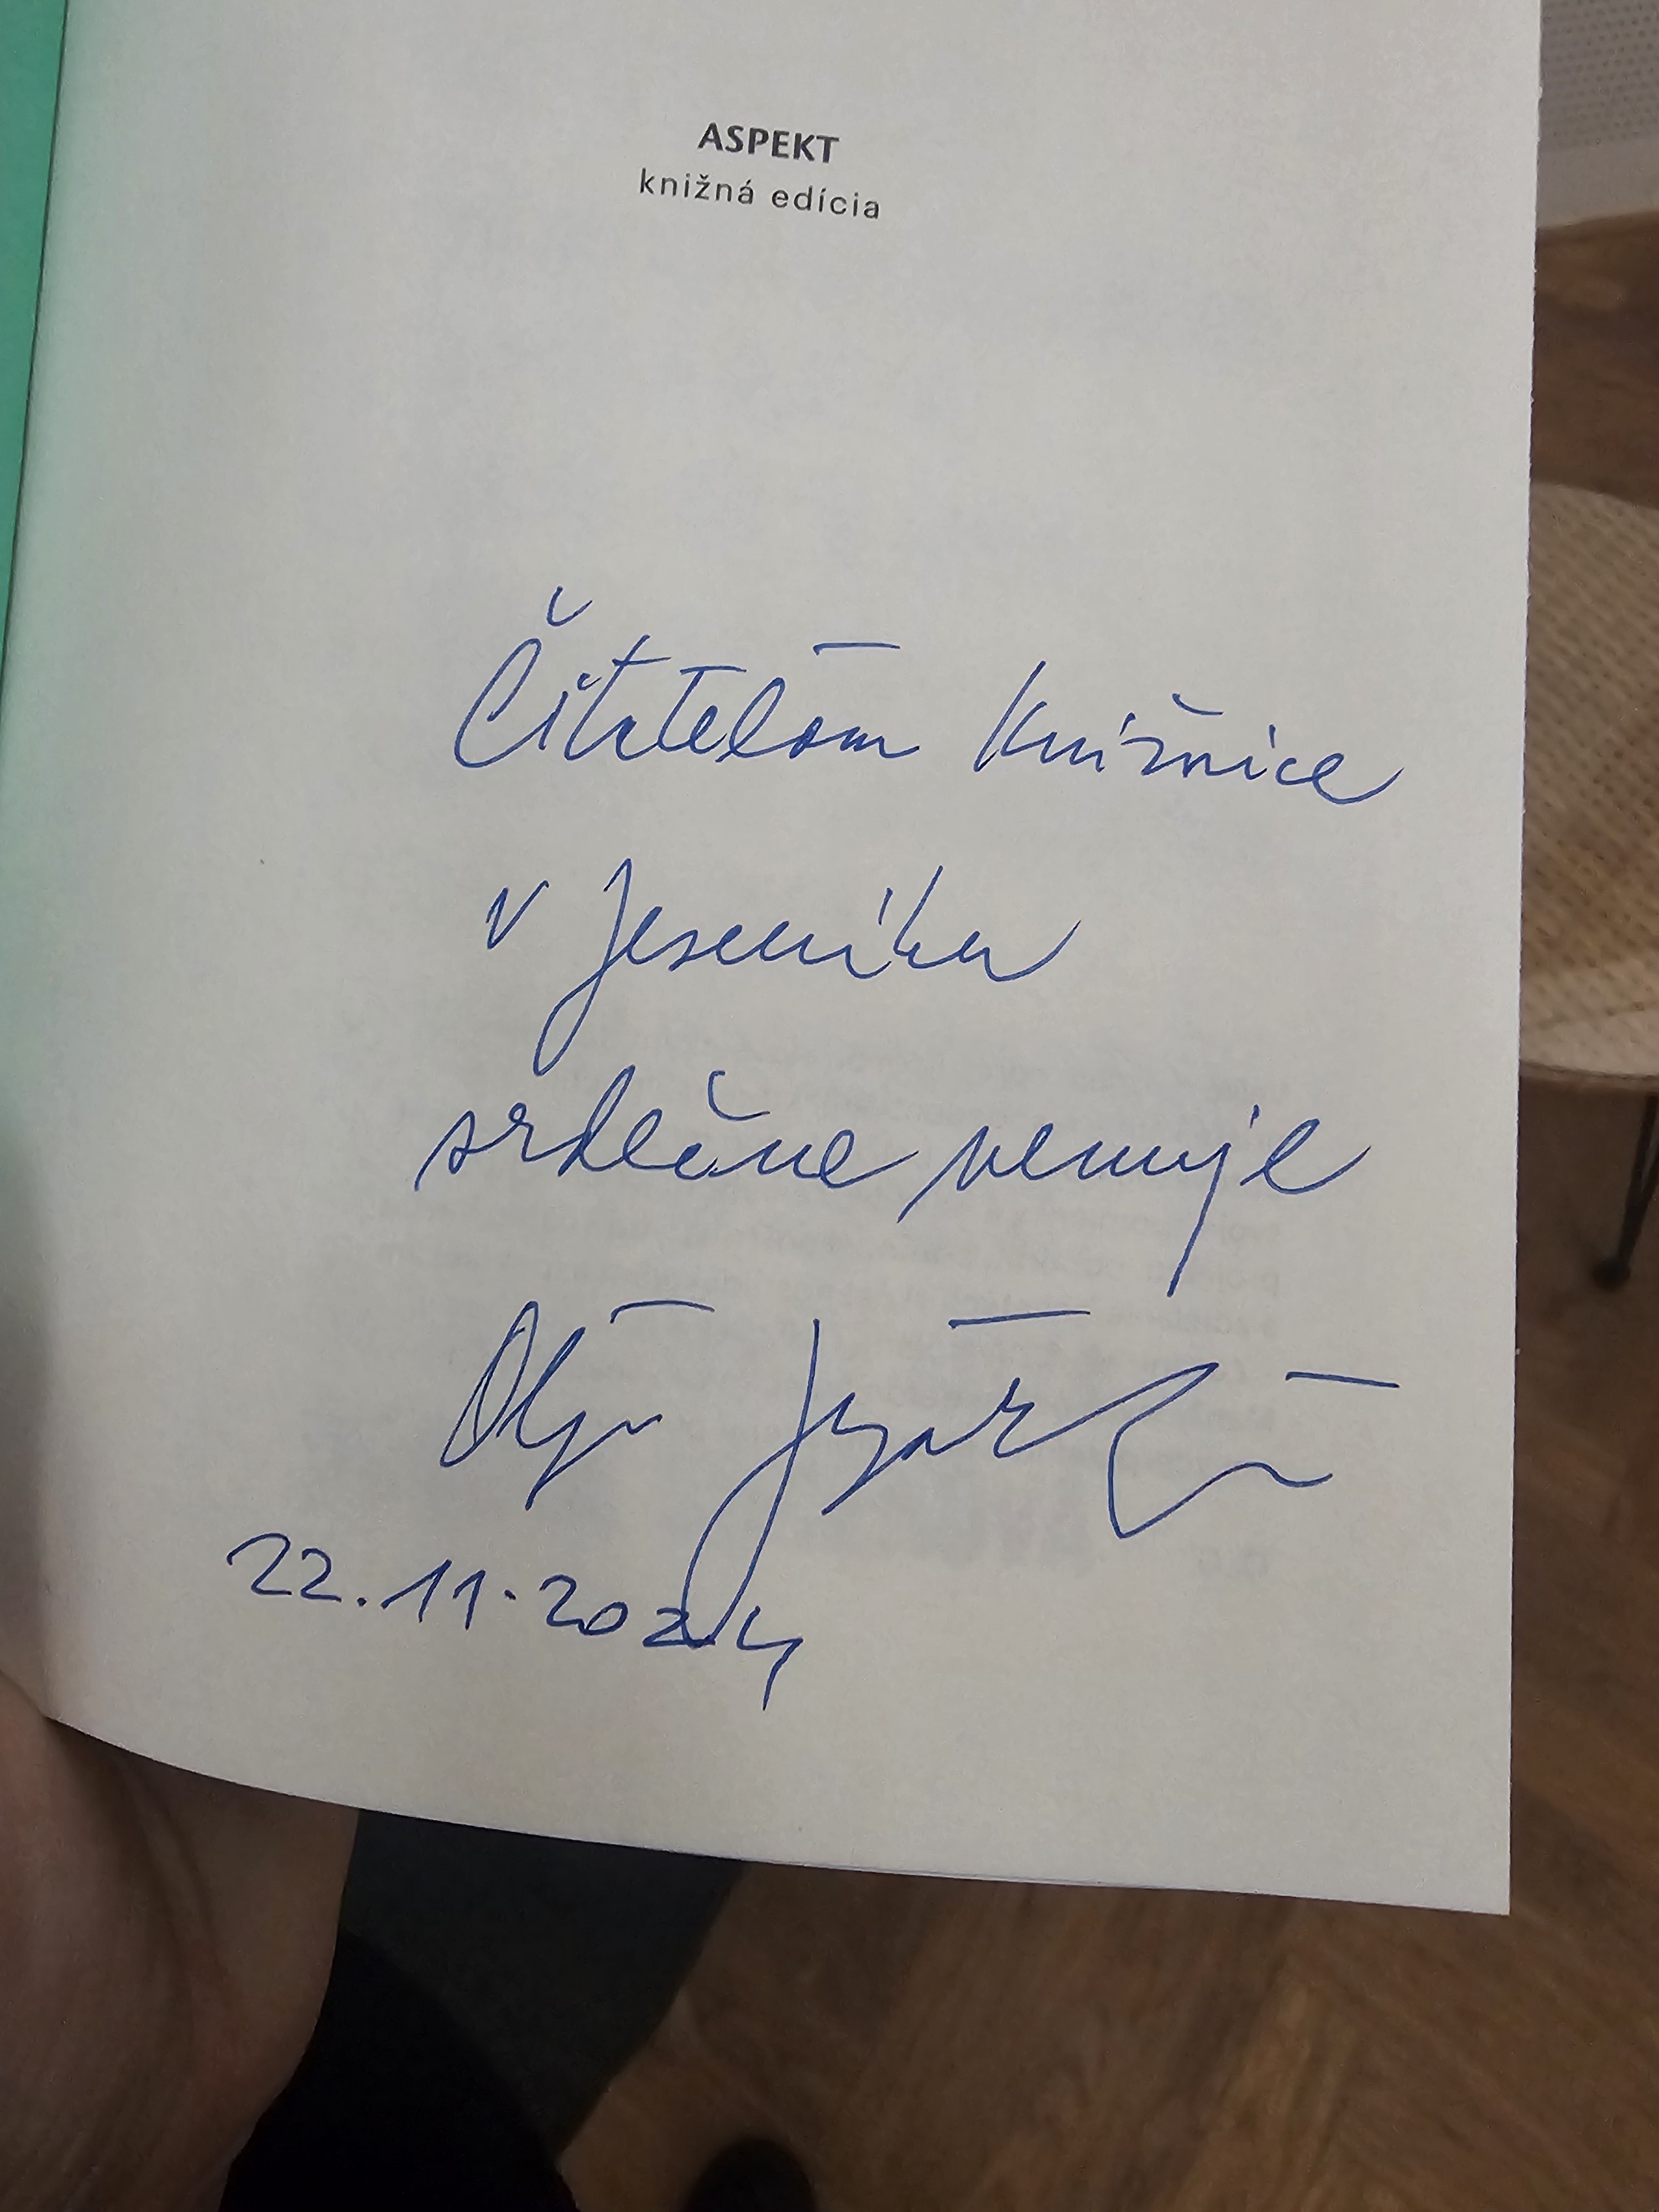 ASPEKT
knižná edícia
Čitateľom Knižnice
v Jeseníku
srdečne venuje
22.11.2024